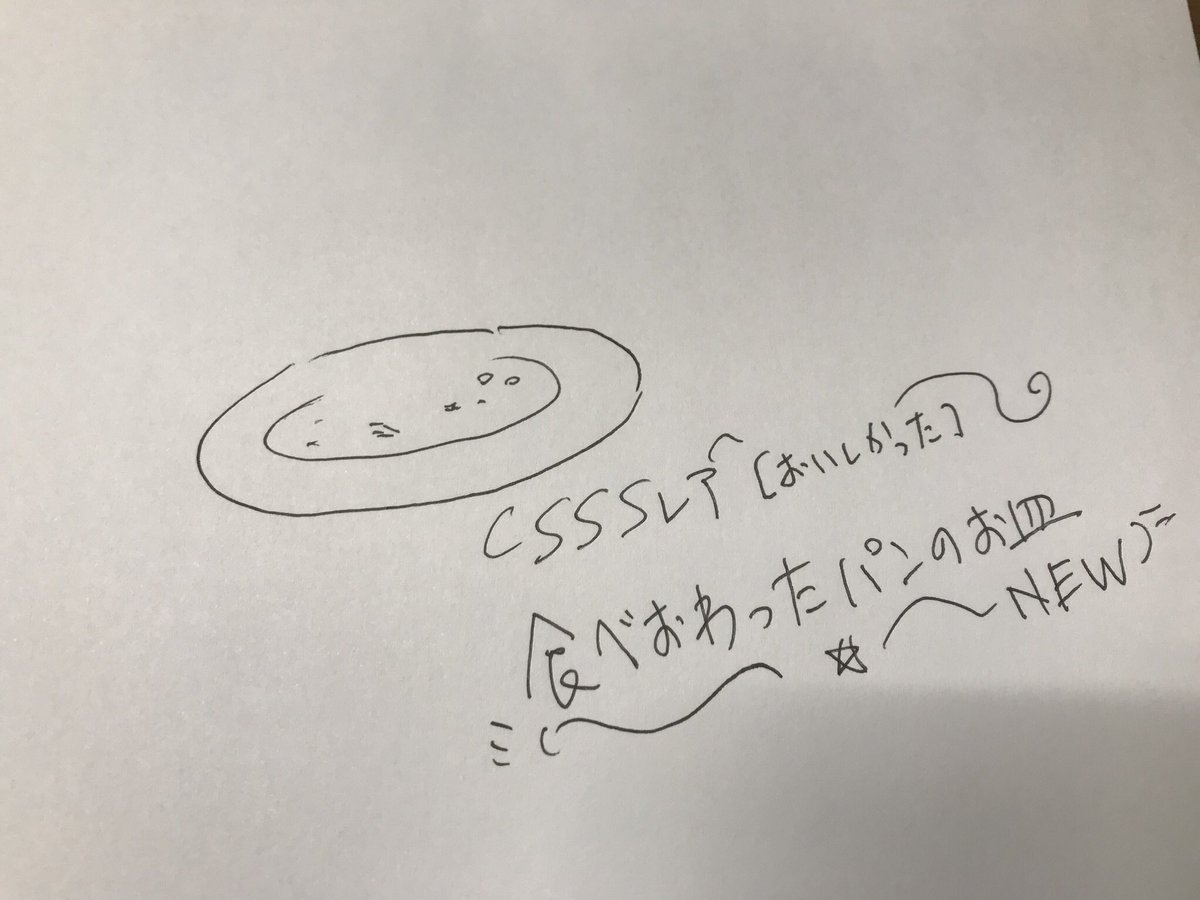 CSSSレア [おいしかった]
食べおわったパンのお皿
NEW